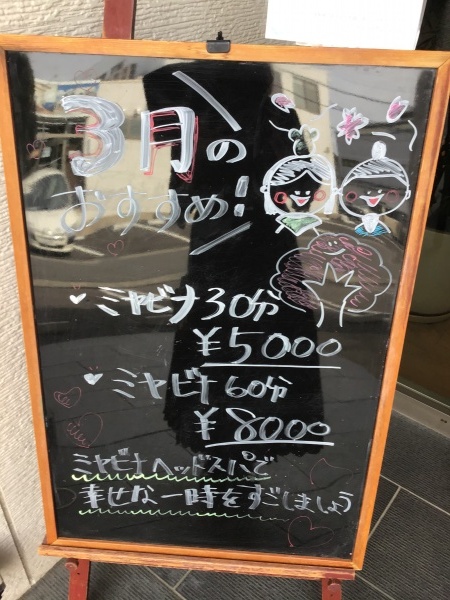 3月の
おすすめ!
ミヤビナ30分
¥5000
ミヤビナ60分
¥8000
ミヤビナヘッドスパで
幸せな一時をすごしましょう